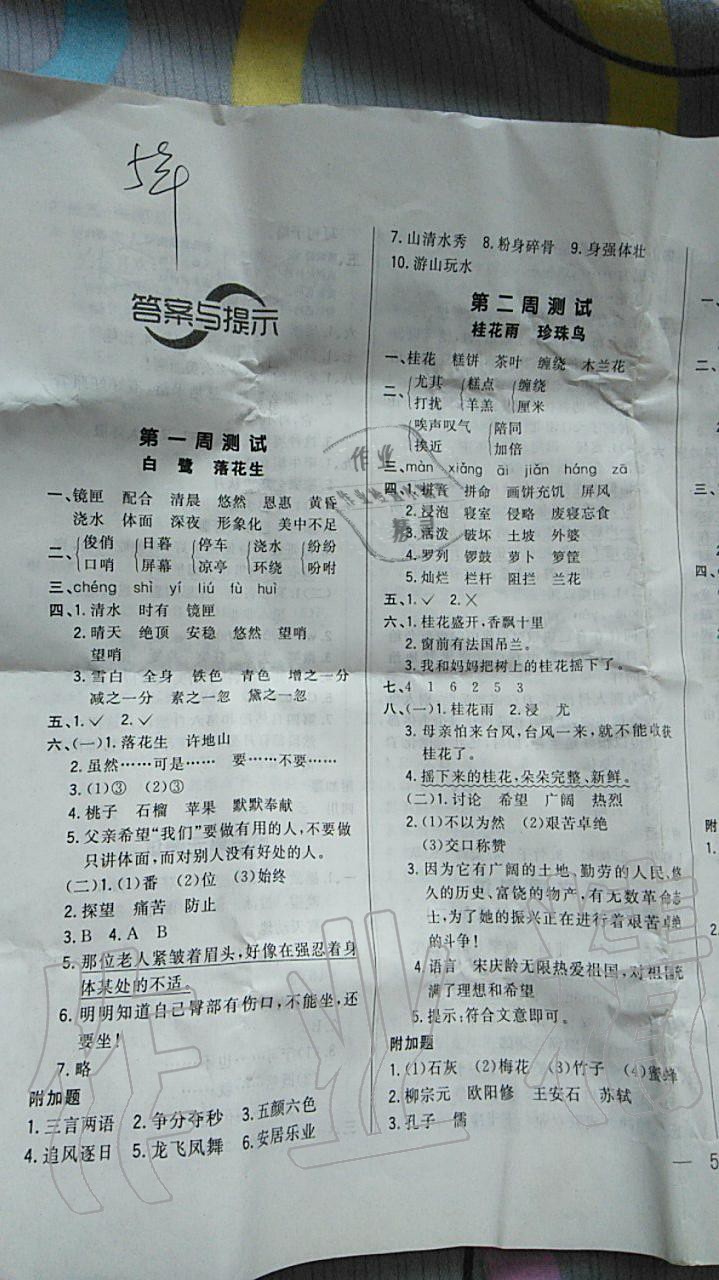 5年
答案与提示
第一周测试
白鹭 落花生
一、镜匣 配合 清晨 悠然 恩惠 黄昏
浇水 体面 深夜 形象化 美中不足
二、{俊俏 {日暮 {停车 {浇水 {纷纷
口哨 屏幕 凉亭 环绕 吩咐
三、chéng shì yí liú fù huì
四、1. 清水 时有 镜匣
2. 晴天 绝顶 安稳 悠然 望哨
望哨
3. 雪白 全身 铁色 青色 增之一分
减之一分 素之一忽 黛之一忽
五、1.✓ 2.✓
六、(一)1. 落花生 许地山
2. 虽然……可是…… 要……不要……
3. (1)③ (2)③
4. 桃子 石榴 苹果 默默奉献
5. 父亲希望“我们”要做有用的人,不要做
只讲体面,而对别人没有好处的人。
(二)1. (1)番 (2)位 (3)始终
2. 探望 痛苦 防止
3. B 4. A B
5. 那位老人紧皱着眉头,好像在强忍着身
体某处的不适。
6. 明明知道自己臀部有伤口,不能坐,还
要坐!
7. 略
附加题
1. 三言两语 2. 争分夺秒 3. 五颜六色
4. 追风逐日 5. 龙飞凤舞 6. 安居乐业
7. 山清水秀 8. 粉身碎骨 9. 身强体壮
10. 游山玩水
第二周测试
桂花雨 珍珠鸟
一、桂花 糕饼 茶叶 缠绕 木兰花
二、{尤其 {糕点 {缠绕
打扰 羊羔 厘米
{唉声叹气 {陪同
挨近 加倍
三、màn xiǎng āi jiǎn háng zā
四、1. 拼音 拼命 画饼充饥 屏风
2. 浸泡 寝室 侵略 废寝忘食
3. 活泼 破坏 土坡 外婆
4. 罗列 锣鼓 萝卜 箩筐
5. 灿烂 栏杆 阻拦 兰花
五、1.✓ 2.✕
六、1. 桂花盛开,香飘十里
2. 窗前有法国吊兰。
3. 我和妈妈把树上的桂花摇下了。
七、4 1 6 2 5 3
八、(一)1. 桂花雨 2. 浸 尤
3. 母亲怕来台风,台风一来,就不能收获
桂花了。
4. 摇下来的桂花,朵朵完整、新鲜。
(二)1. 讨论 希望 广阔 热烈
2. (1)不以为然 (2)艰苦卓绝
(3)交口称赞
3. 因为它有广阔的土地、勤劳的人民、悠
久的历史、富饶的物产,有无数革命志
士,为了她的振兴正在进行着艰苦卓绝
的斗争!
4. 语言 宋庆龄无限热爱祖国,对祖国充
满了理想和希望
5. 提示:符合文意即可。
附加题
1. (1)石灰 (2)梅花 (3)竹子 (4)蜜蜂
2. 柳宗元 欧阳修 王安石 苏轼
3. 孔子 儒
— 5
作业精